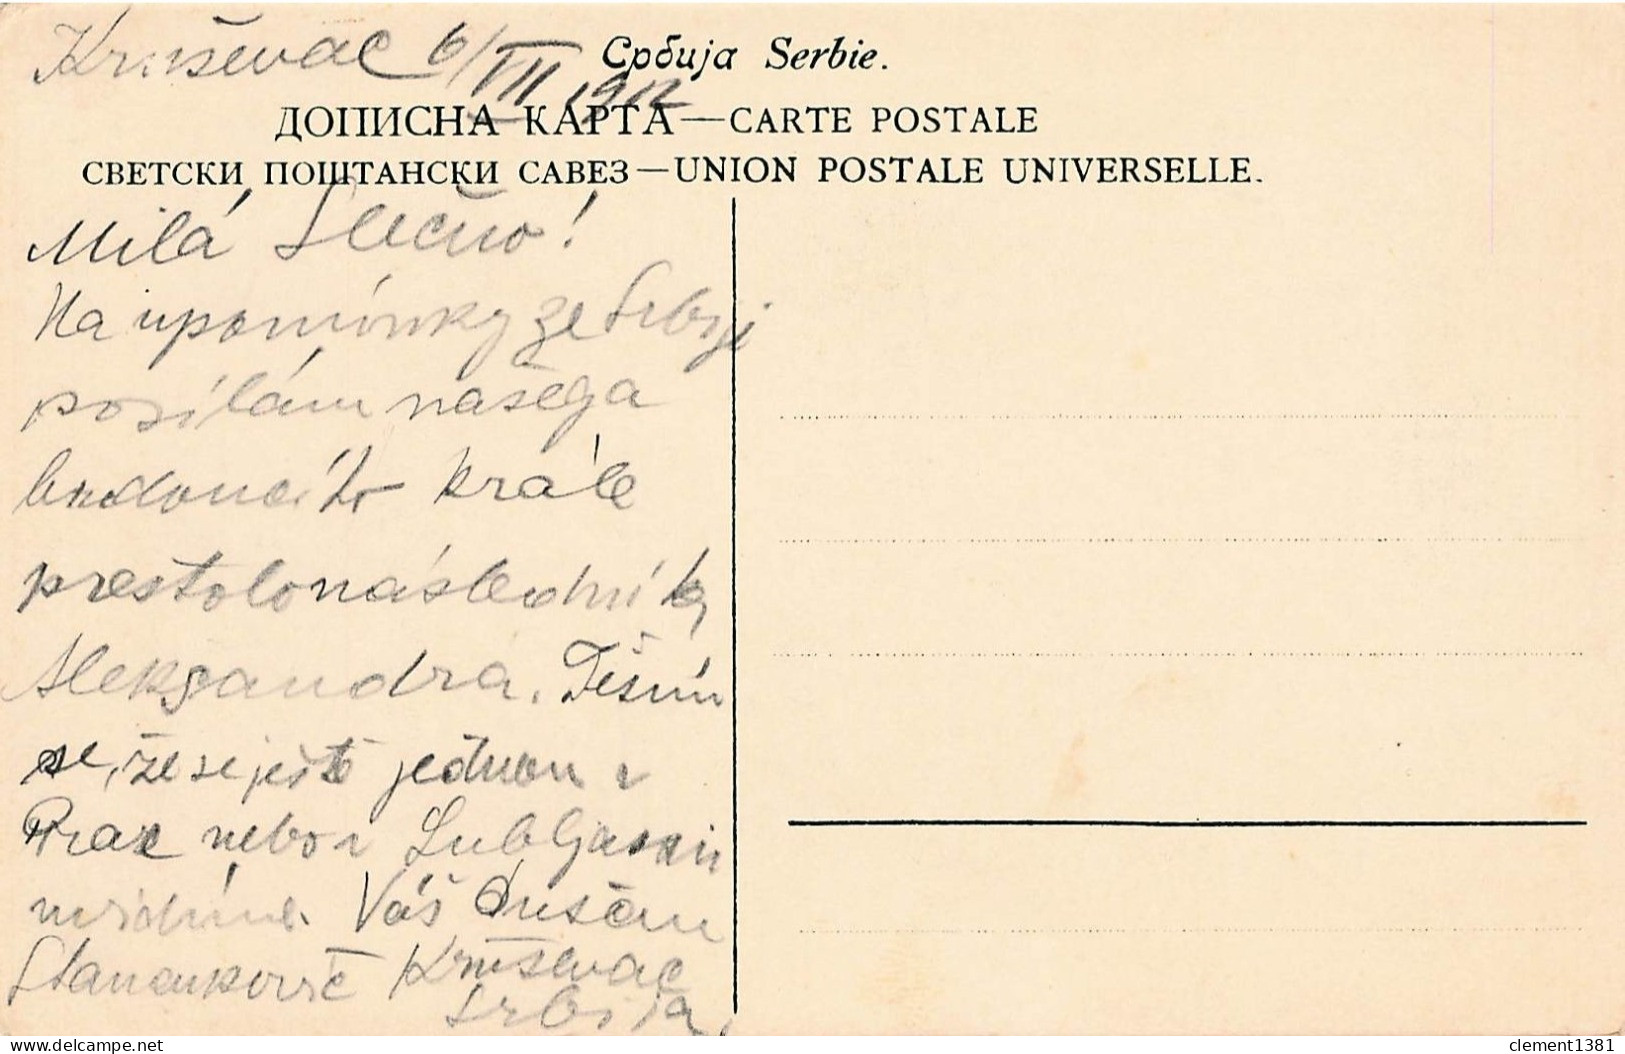 Kruševac 6/VII 1912
Србија Serbie.
ДОПИСНА КАРТА—CARTE POSTALE
СВЕТСКИ ПОШТАНСКИ САВЕЗ—UNION POSTALE UNIVERSELLE.
Milá Slečno!
Na upomínky ze Srbiji
posílám našega
budoucího krále
prestolonásledníka
Aleksandra. Těším
se, že se ještě jednou v
Praze nebo v Lubljani
uvidíme. Váš Dušan
Stanenkovič Kruševac
Srbija.
clement1381